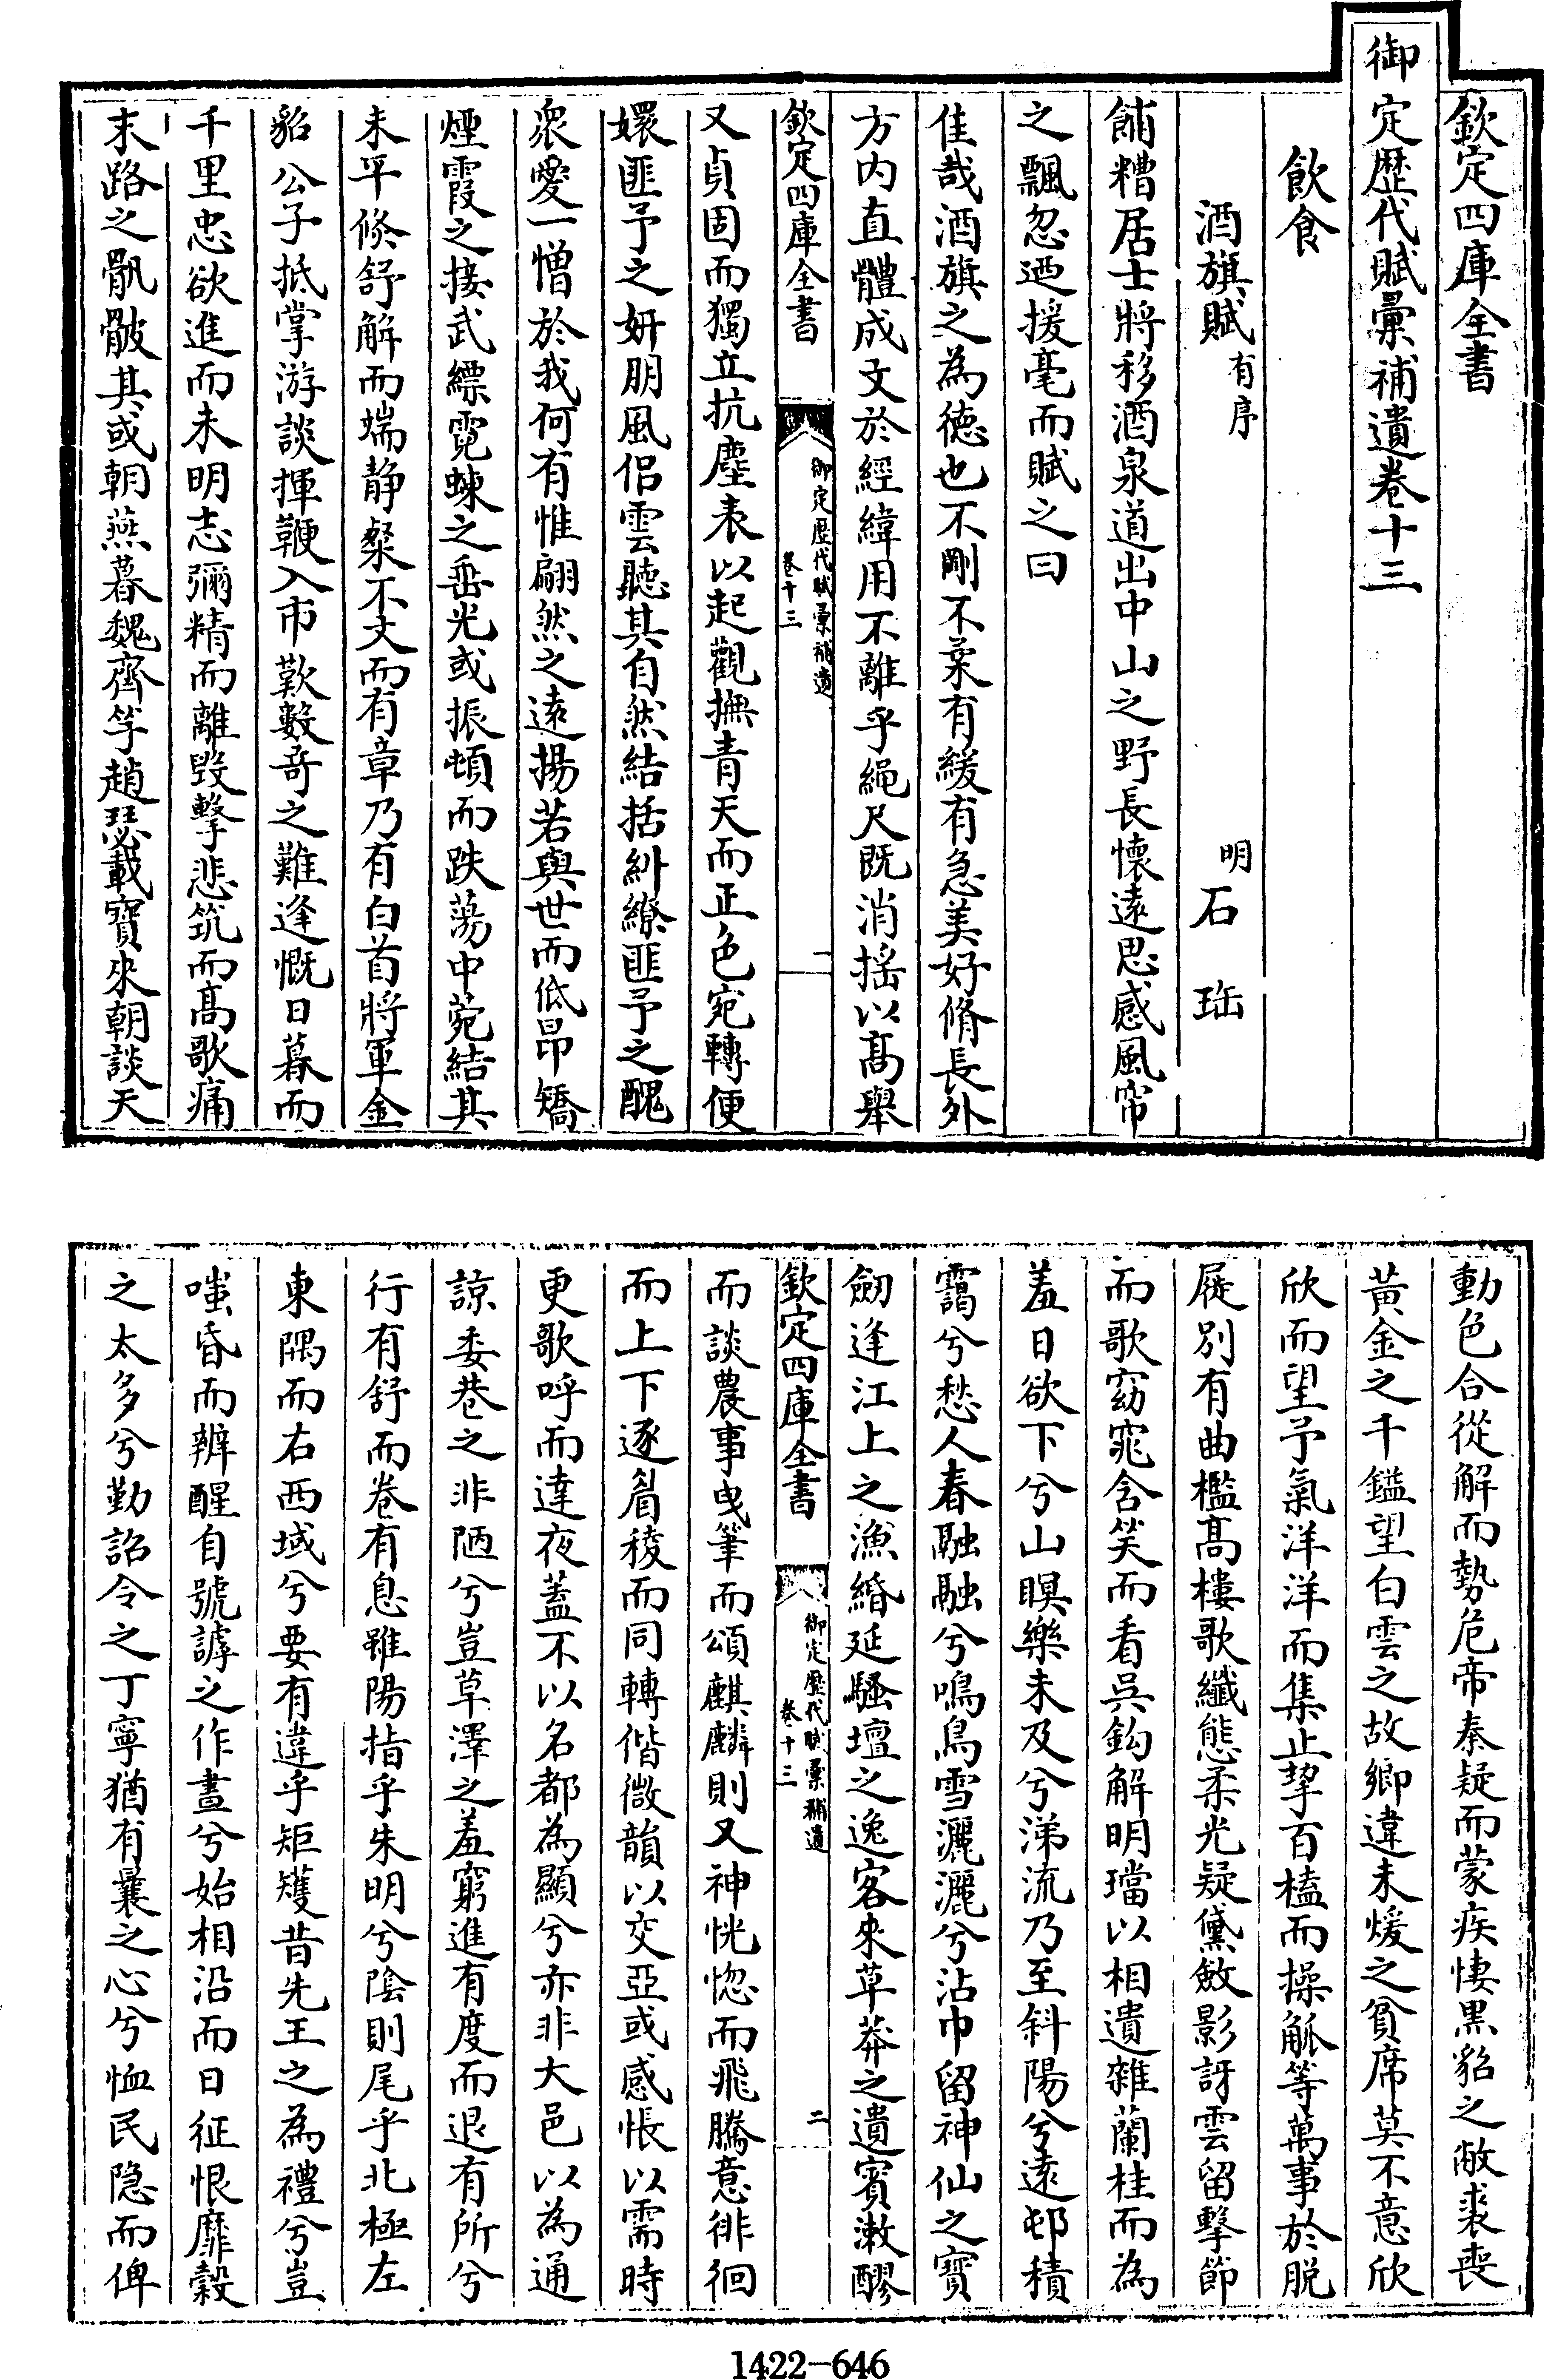 欽定四庫全書
御定歴代賦彙補遺卷十三
飲食
酒旗賦有序 明石珤
餔糟居士將移酒泉道出中山之野長懷遠思感風帘
之飄忽迺援毫而賦之曰
佳哉酒旗之為徳也不剛不柔有緩有急美好脩長外
方内直體成文於經緯用不離乎繩尺既消揺以髙舉
欽定四庫全書 御定歴代賦彙補遺 卷十三 一
又貞固而獨立抗塵表以起觀撫青天而正色宛轉便
嬛匪予之妍朋風侣雲聽其自然結括糾繚匪予之醜
衆愛一憎於我何有惟翩然之遠揚若與世而低昂矯
煙霞之接武縹霓蝀之垂光或振頓而跌蕩中菀結其
未平倐舒解而端静粲不文而有章乃有白首將軍金
貂公子抵掌游談揮鞭入市歎數奇之難逢慨日暮而
千里忠欲進而未明志彌精而離毁擊悲筑而髙歌痛
末路之骩骳其或朝燕暮魏齊竽趙瑟載寶來朝談天
動色合從解而勢危帝秦疑而蒙疾悽黒貂之敝裘喪
黄金之千鎰望白雲之故鄉違未煖之貧席莫不意欣
欣而望予氣洋洋而集止挈百榼而操觚等萬事於脱
屣别有曲檻髙樓歌纎態柔光疑黛斂影訝雲留擊節
而歌窈窕含笑而看吳鈎解明璫以相遺雜蘭桂而為
羞日欲下兮山瞑樂未及兮涕流乃至斜陽兮遠邨積
靄兮愁人春融融兮鳴鳥雪灑灑兮沾巾留神仙之寳
劒逢江上之漁緡延騷壇之逸客來草莽之遺賓漱醪
欽定四庫全書 御定歴代賦彙補遺 卷十三 二
而談農事曵筆而頌麒麟則又神恍惚而飛騰意徘徊
而上下逐眉稜而同轉偕微韻以交亞或感悵以需時
更歌呼而達夜蓋不以名都為顯兮亦非大邑以為通
諒委巷之非陋兮豈草澤之羞窮進有度而退有所兮
行有舒而卷有息雖陽指乎朱明兮隂則尾乎北極左
東隅而右西域兮要有違乎矩矱昔先王之為禮兮豈
嗤昏而辨醒自號謼之作晝兮始相沿而日征恨靡糓
之太多兮勤詔令之丁寧猶有曩之心兮恤民隐而俾
1422-646